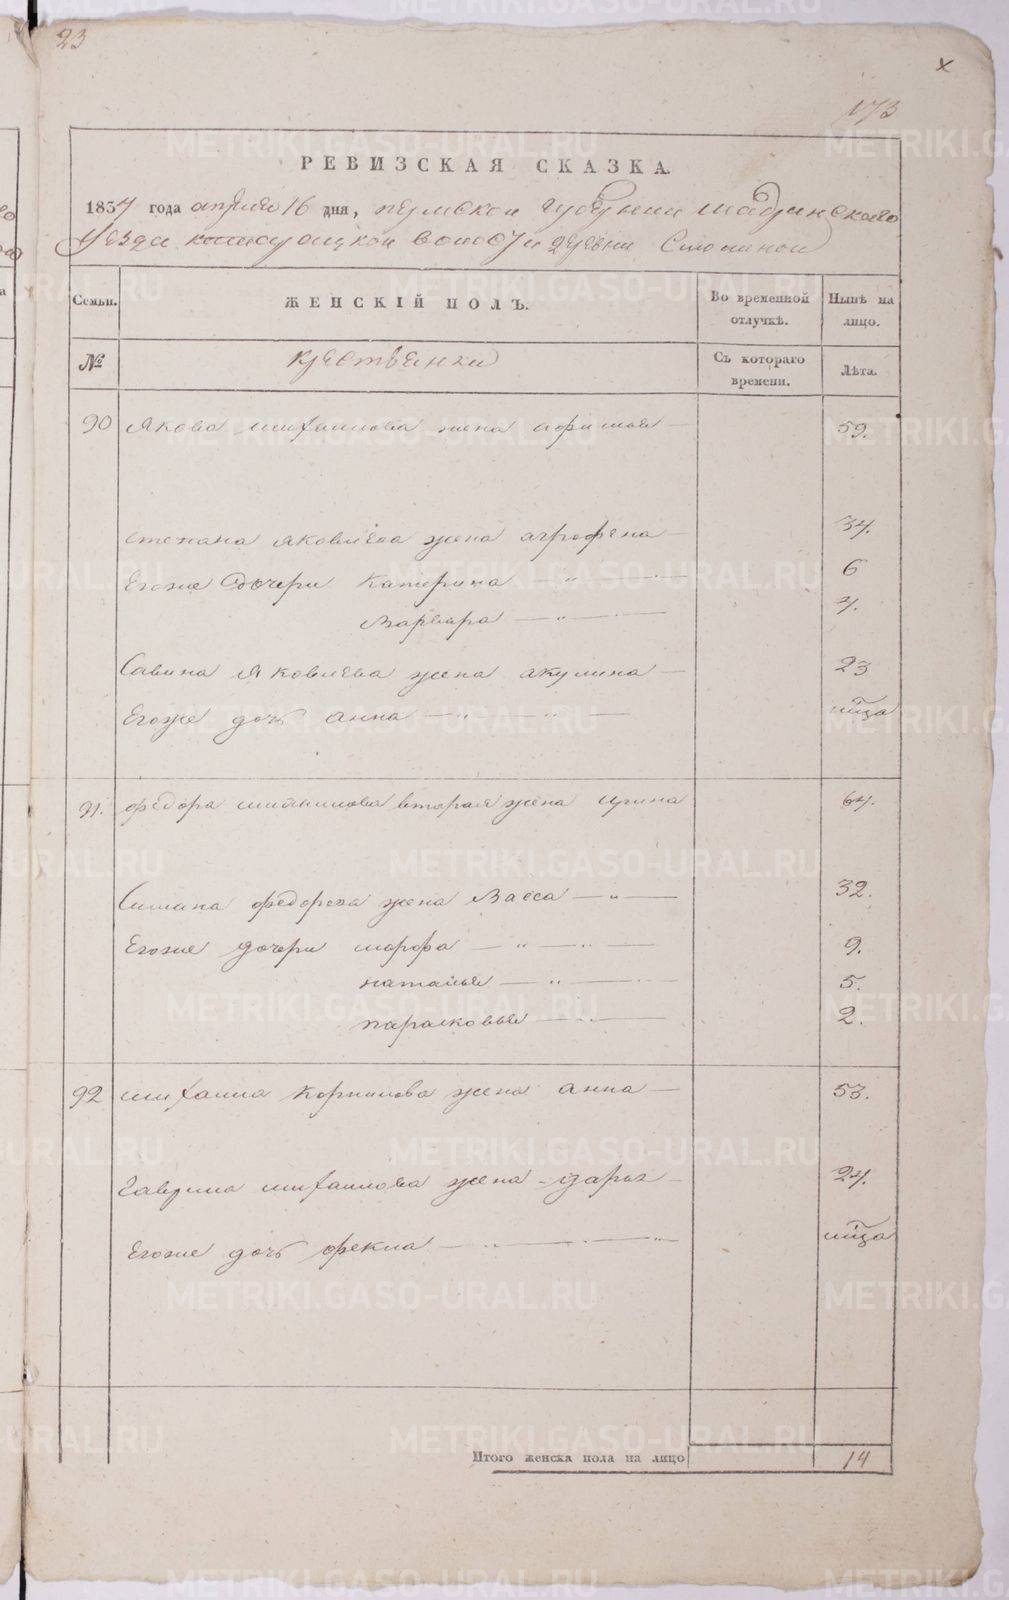 23
х
173
РЕВИЗСКАЯ СКАЗКА.
1834 года апреля 16 дня, пермской губернии шадринского
уезда волости деревни
Семьи. ЖЕНСКІЙ ПОЛЪ. Во временной отлучкѣ. Нынѣ на лицо.
№ крестьянки Съ котораго времени. Лѣта.
90 Якова михаилова жена афимья — 59.
степана яковлева жена агрофена — 34.
Егоже дочери катерина — „ — 6
варвара — „ — 4.
Савина яковлева жена акулина — 23
Егоже дочь анна — „ — „ —
91. федора михаилова вторая жена ирина 64.
Симана федорова жена Васса — „ — 32.
Егоже дочери марфа — „ — „ — 9.
наталья — „ — 5.
парасковья — 2.
92 михаила корнилова жена анна — 53.
Гаврила михаилова жена дарья — 24.
Егоже дочь фекла — „ — „
Итого женска пола на лицо 14
METRIKI.GASO-URAL.RU